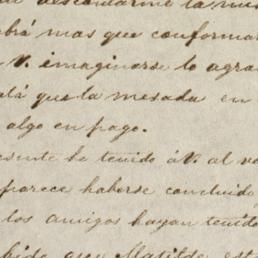 descontarme la mes
abrá mas que conformar
V. imaginarse lo agra
alá que la mesada en
algo en pago.
esente he tenido á V. al co
parece haberse concluido
los amigos hayan tenido
pide que Matilde est